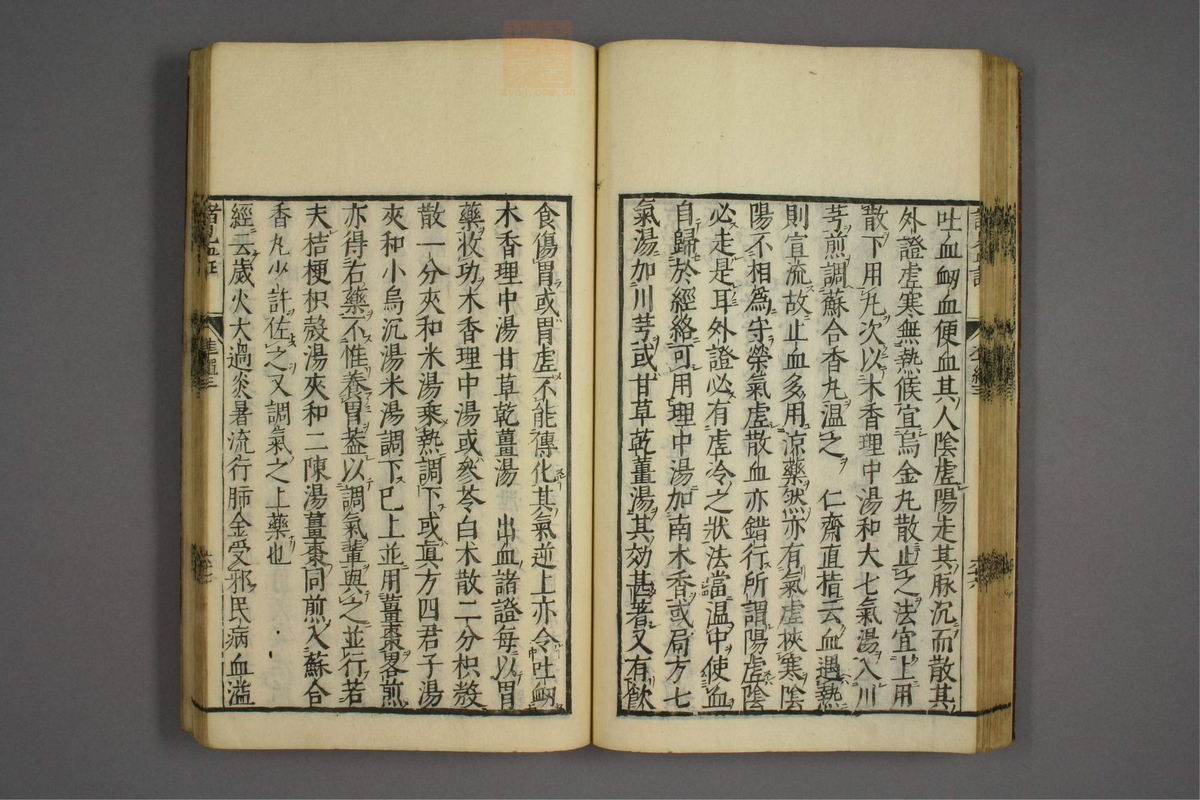 吐血衂血便血其人陰虛陽走其脉沉而散其
外證虛寒無熱候宜烏金丸散止之法宜上用
散下用丸次以木香理中湯和大七氣湯入川
芎煎調蘇合香丸溫之 仁齋直指云血遇熱
則宣流故止血多用凉藥然亦有氣虛挾寒陰
陽不相爲守榮氣虛散血亦錯行所謂陽虛陰
必走是耳外證必有虛冷之狀法當溫中使血
自歸於經絡可用理中湯加南木香或局方七
氣湯加川芎或甘草乾薑湯其効甚著又有飲
食傷胃或胃虛不能傳化其氣逆上亦令吐衂
木香理中湯甘草乾薑湯 出血諸證每以胃
藥收功木香理中湯或參苓白朮散二分枳殼
散一分夾和米湯乘熱調下或真方四君子湯
夾和小烏沉湯米湯調下已上並用薑棗畧煎
亦得右藥不惟養胃蓋以調氣輩與之並行若
夫桔梗枳殼湯夾和二陳湯薑棗同煎入蘇合
香丸少許佐之又調氣之上藥也
經云歲火大過炎暑流行肺金受邪民病血溢